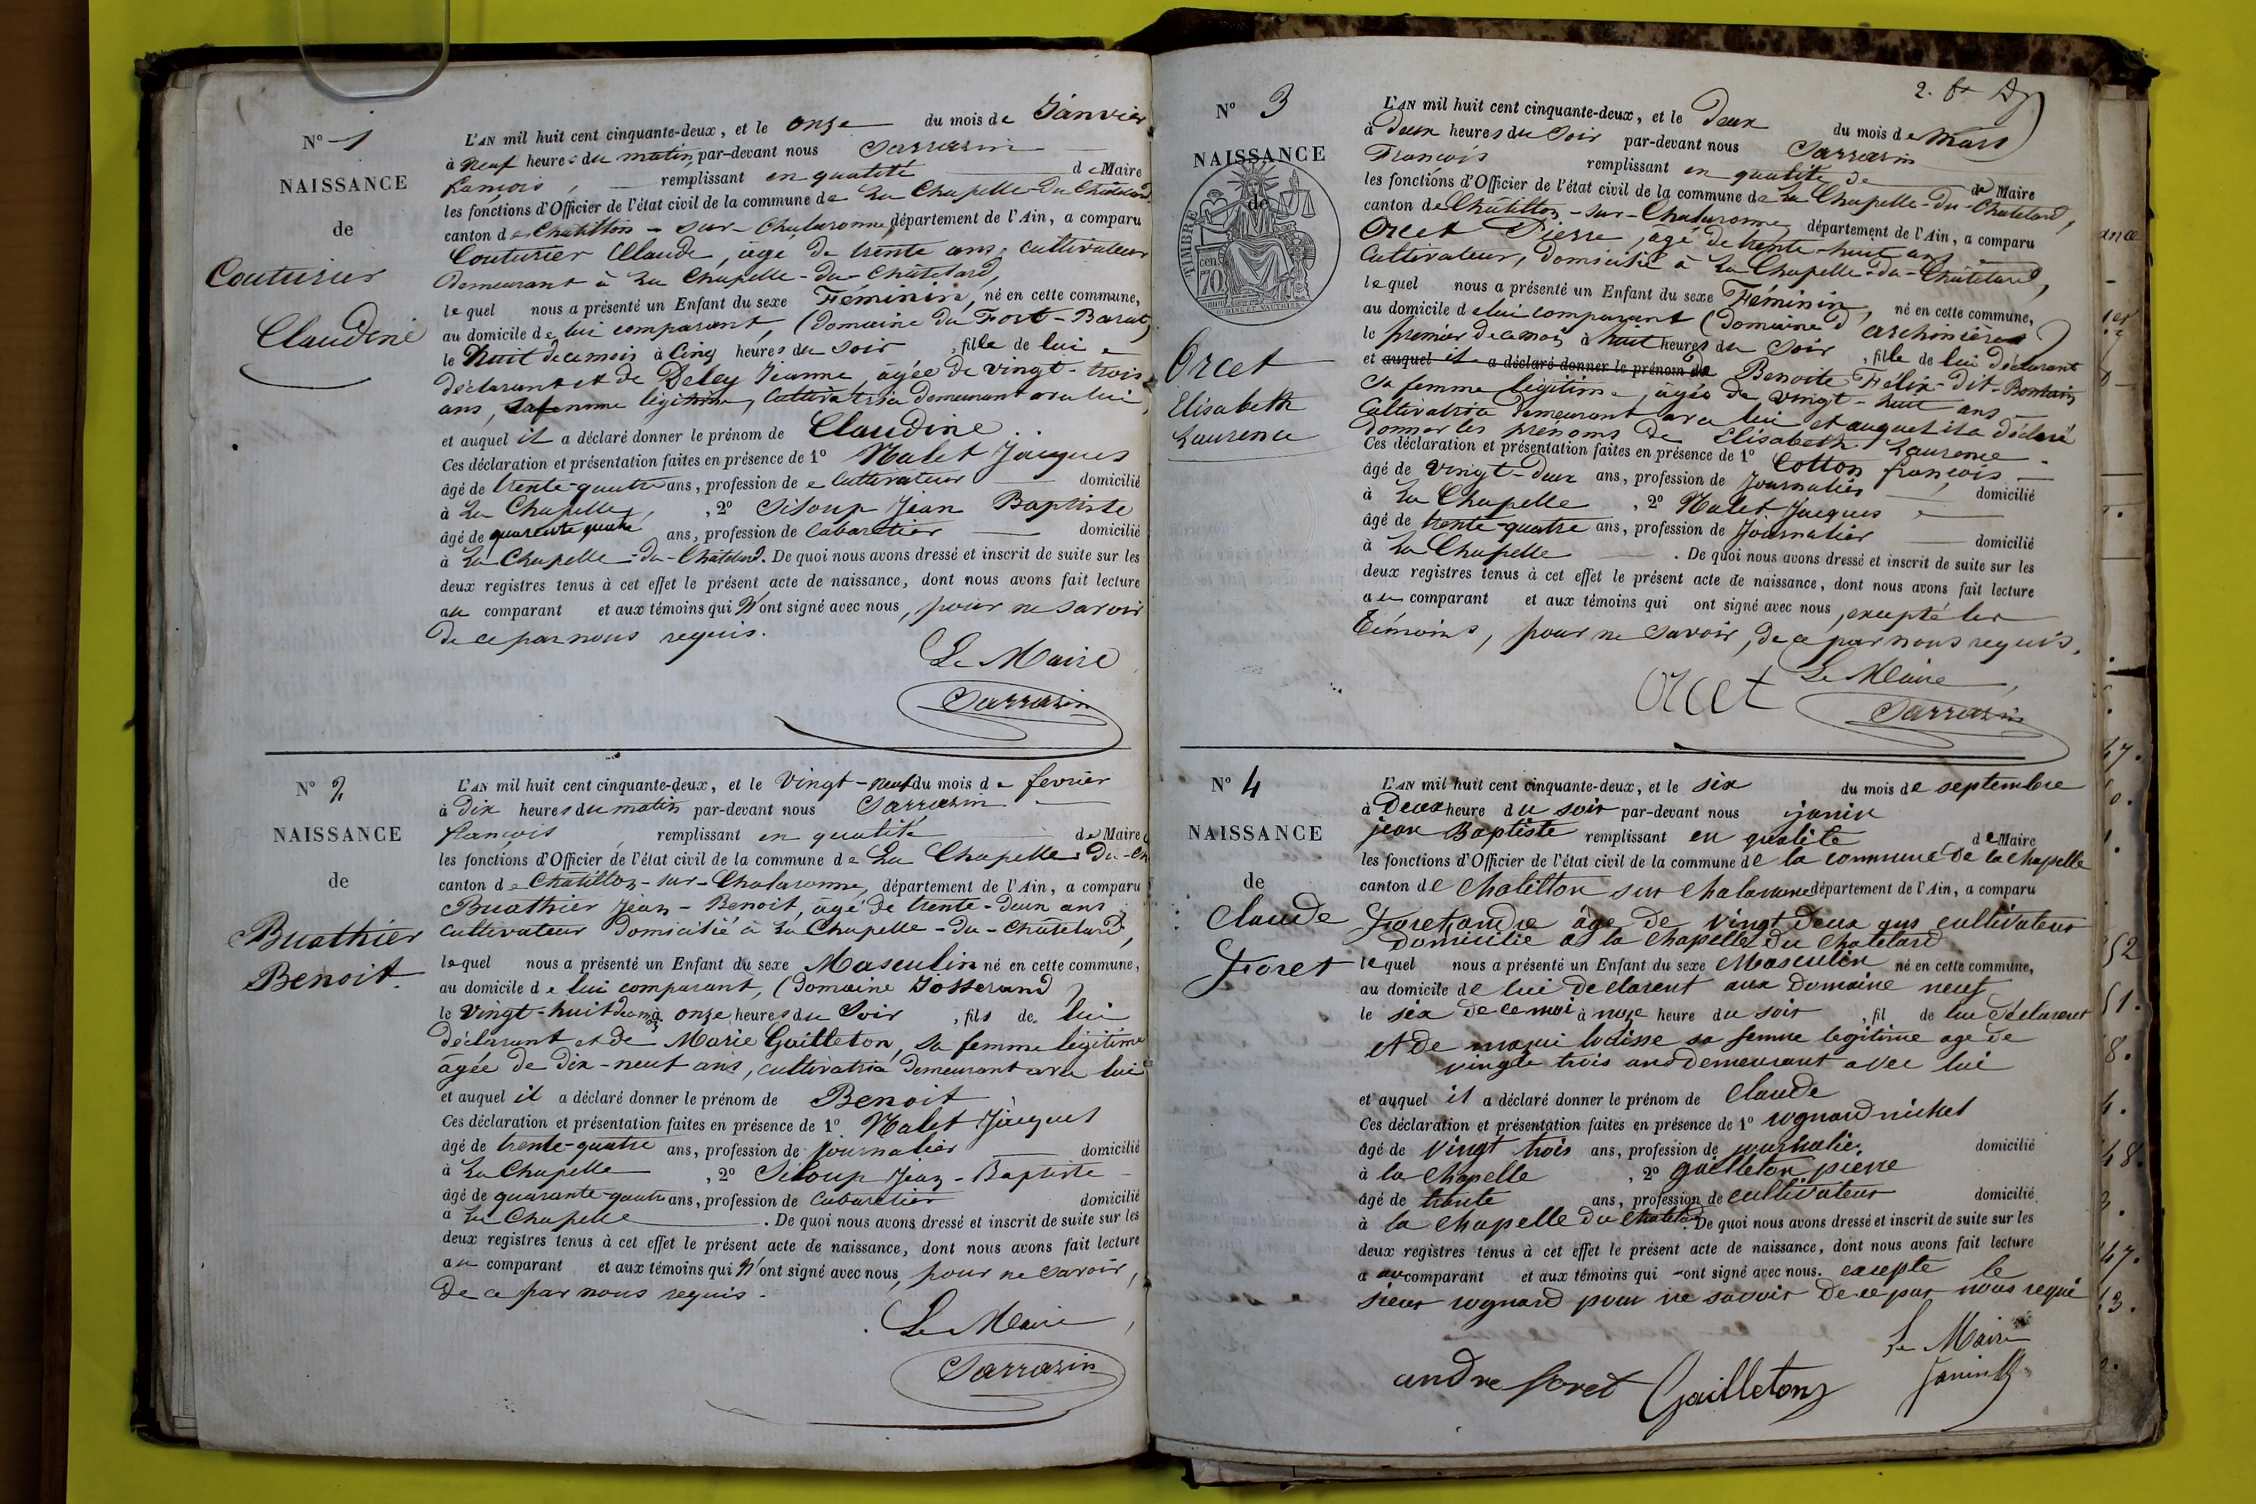 N° 1
NAISSANCE
de
Couturier
Claudine
L'AN mil huit cent cinquante-deux, et le onze du mois de Janvier
à neuf heures du matin par-devant nous Sarrazin
françois, remplissant en qualité de Maire
les fonctions d'Officier de l'état civil de la commune de La Chapelle-du-Châtelard
canton de Châtillon-sur-Chalaronne, département de l'Ain, a comparu
Couturier Claude, âgé de trente ans, cultivateur
demeurant à La Chapelle-du-Châtelard,
lequel nous a présenté un Enfant du sexe Féminin, né en cette commune,
au domicile de lui comparant, (Domaine du Fort-Barat)
le huit de ce mois à Cinq heures du soir, fille de lui
déclarant et de Deley Jeanne, âgée de vingt-trois
ans, sa femme légitime, cultivatrice demeurant avec lui,
et auquel il a déclaré donner le prénom de Claudine.
Ces déclaration et présentation faites en présence de 1° Malet Jacques
âgé de trente-quatre ans, profession de cultivateur domicilié
à La Chapelle, 2° Siloup Jean Baptiste
âgé de quarante quatre ans, profession de Cabaretier domicilié
à La Chapelle-du-Châtelard. De quoi nous avons dressé et inscrit de suite sur les
deux registres tenus à cet effet le présent acte de naissance, dont nous avons fait lecture
au comparant et aux témoins qui n'ont signé avec nous, pour ne savoir
de ce par nous requis.
Le Maire
Sarrazin
N° 2
NAISSANCE
de
Buathier
Benoit.
L'AN mil huit cent cinquante-deux, et le vingt-neuf du mois de fevrier
à dix heures du matin par-devant nous Sarrazin
françois remplissant en qualité de Maire
les fonctions d'Officier de l'état civil de la commune de La Chapelle-du-Ch
canton de Châtillon-sur-Chalaronne, département de l'Ain, a comparu
Buathier Jean-Benoit, âgé de trente-deux ans
cultivateur domicilié à La Chapelle-du-Châtelard,
lequel nous a présenté un Enfant du sexe Masculin né en cette commune,
au domicile de lui comparant, (Domaine Josserand)
le vingt-huit du mois à onze heures du soir, fils de lui
déclarant et de Marie Gailleton, sa femme légitime
âgée de dix-neuf ans, cultivatrice demeurant avec lui
et auquel il a déclaré donner le prénom de Benoit
Ces déclaration et présentation faites en présence de 1° Malet Jacques
âgé de trente-quatre ans, profession de journalier domicilié
à La Chapelle, 2° Siloup Jean-Baptiste
âgé de quarante-quatre ans, profession de Cabaretier domicilié
à La Chapelle. De quoi nous avons dressé et inscrit de suite sur les
deux registres tenus à cet effet le présent acte de naissance, dont nous avons fait lecture
au comparant et aux témoins qui n'ont signé avec nous, pour ne savoir,
de ce par nous requis.
Le Maire,
Sarrazin
2.
N° 3
NAISSANCE
de
TIMBRE
70 cen
Orcet
Elisabeth
Laurence
L'AN mil huit cent cinquante-deux, et le deux du mois de Mars
à deux heures du soir par-devant nous Sarrazin
François remplissant en qualité de de Maire
les fonctions d'Officier de l'état civil de la commune de La Chapelle-du-Châtelard,
canton de Châtillon-sur-Chalaronne, département de l'Ain, a comparu
Orcet Pierre, âgé de trente-huit ans
cultivateur, domicilié à La Chapelle-du-Châtelard,
lequel nous a présenté un Enfant du sexe Féminin, né en cette commune,
au domicile de lui comparant (Domaine d'archinières)
le premier de ce mois à huit heures du soir, fille de lui déclarant
et auquel il a déclaré donner le prénom de Benoite Félix-dit-Bontain
sa femme légitime, âgée de vingt-huit ans
cultivatrice demeurant avec lui et auquel il a déclaré
donner les prénoms de Elisabeth Laurence.
Ces déclaration et présentation faites en présence de 1° Cotton françois
âgé de vingt-deux ans, profession de Journalier domicilié
à La Chapelle, 2° Malet Jacques
âgé de trente-quatre ans, profession de Journalier domicilié
à La Chapelle. De quoi nous avons dressé et inscrit de suite sur les
deux registres tenus à cet effet le présent acte de naissance, dont nous avons fait lecture
au comparant et aux témoins qui ont signé avec nous, excepté les
témoins, pour ne savoir, de ce par nous requis.
Le Maire,
Orcet Sarrazin
N° 4
NAISSANCE
de
Claude
Foret
L'AN mil huit cent cinquante-deux, et le six du mois de septembre
à Deux heure du soir par-devant nous janin
jean Baptiste remplissant en qualité de Maire
les fonctions d'Officier de l'état civil de la commune de la commune de la chapelle
canton de chatillon sur chalaronne département de l'Ain, a comparu
Foret andre âge de vingt deux ans cultivateur
domicilie a la chapelle du chatelard
lequel nous a présenté un Enfant du sexe Masculin né en cette commune,
au domicile de lui declarent aux domaine neuf
le six de ce moi à heure du soir, fil de lui declarent
et de sa femme legitime age de
vingte trois ans demeurant avec lui
et auquel il a déclaré donner le prénom de Claude
Ces déclaration et présentation faites en présence de 1° rognard michel
âgé de vingt trois ans, profession de journalier domicilié
à la chapelle, 2° gailleton pierre
âgé de trante ans, profession de cultivateur domicilié
à la chapelle du chatelard De quoi nous avons dressé et inscrit de suite sur les
deux registres tenus à cet effet le présent acte de naissance, dont nous avons fait lecture
a au comparant et aux témoins qui ont signé avec nous. excepte le
sieur rognard pour ne savoir de ce par nous requi
Le Maire
andre foret Gailleton Janin